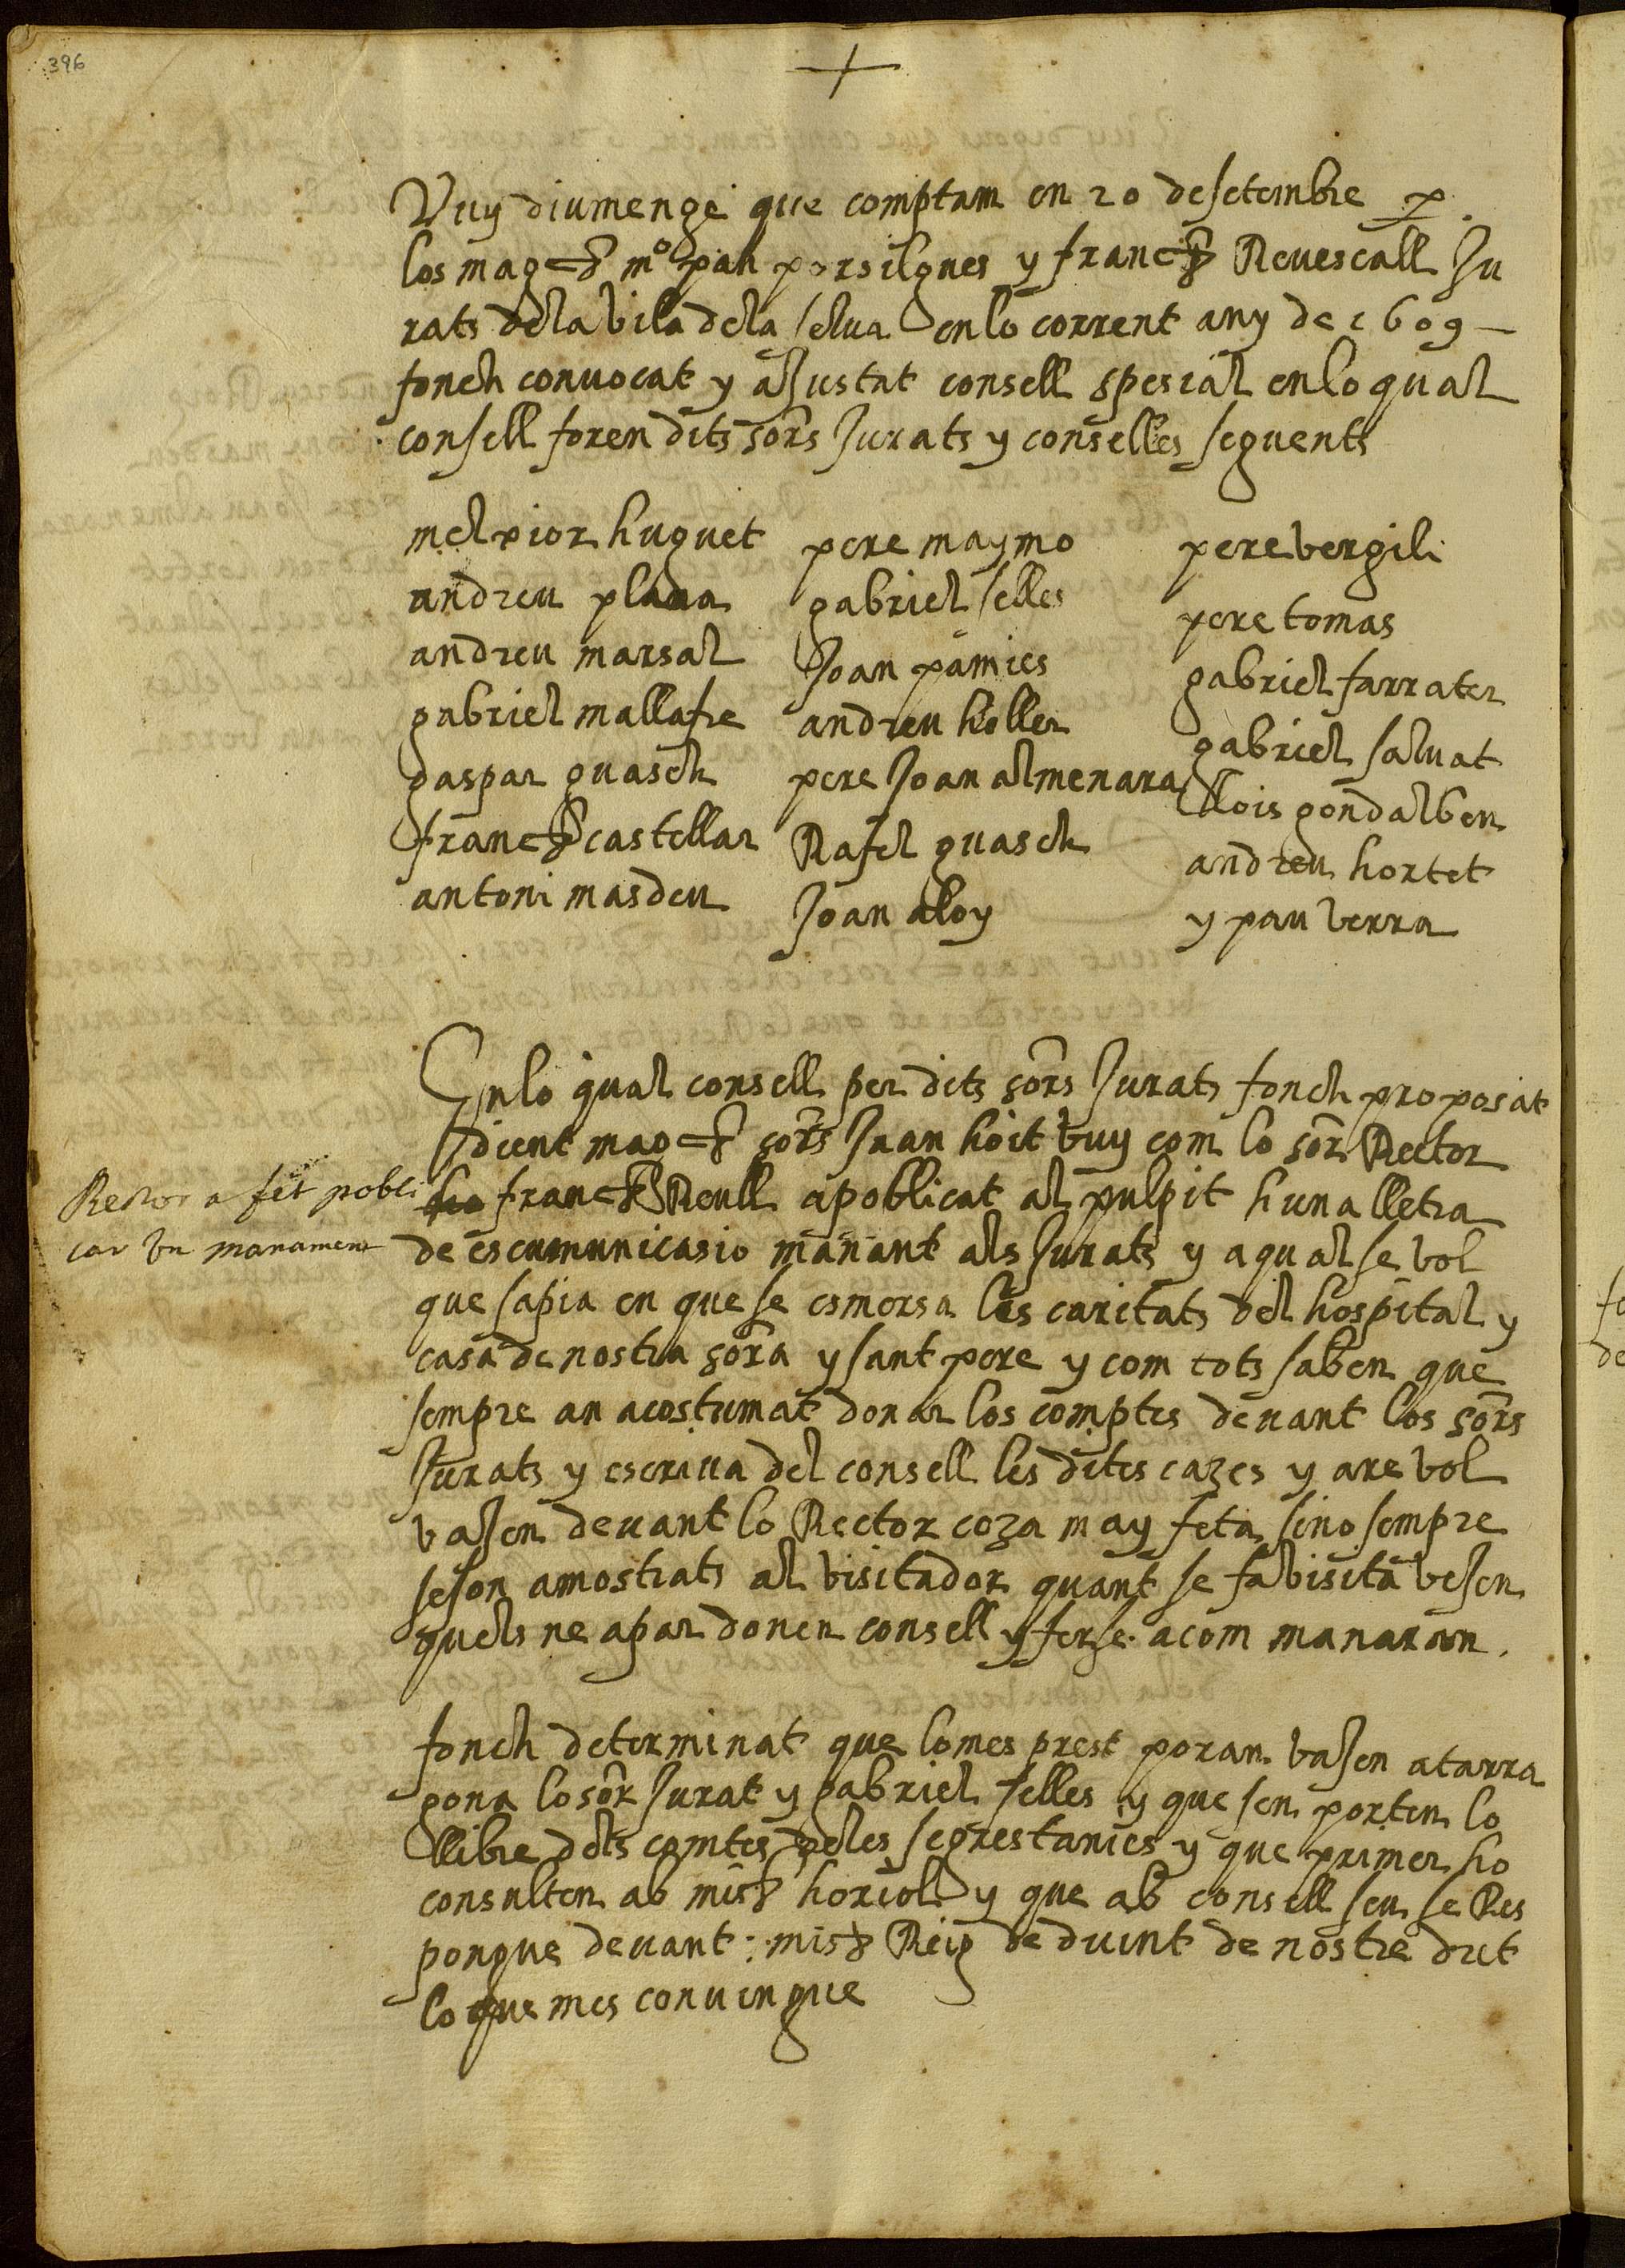 396
Vuy diumenge que comptam en 20 de setembre p.
los magcs mo pau porsilgues y francs Revescall Ju
rats dela vila dela selva en lo corrent any de 1609
fonch convocat y aJustat consell spesial en lo qual
consell foren dits sors Jurats y conselles seguents
melxior huguet
andreu plana
andreu marsal
gabriel mallafre
gaspar guasch
francs castellar
antoni masdeu
pere maymo
gabriel selles
Joan pamies
andreu holler
pere Joan almenara
Rafel guasch
Joan aloy
pere vergili
pere tomas
gabriel farrater
gabriel salvat
llois gondalben
andreu hortet
y pau verra
En lo qual consell per dits sors Jurats fonch proposat
dient magcs sors Jaan hoit vuy com lo sor Rector
francs Roull apoblicat al pulpit huna lletra
Rector a fet pobli
car vn manament
de escumunicasio manant als Jurats y a qual se vol
que sapia en que se esmersa les caritats del hospital y
casa de nostra sora y sant pere y com tots saben que
sempre an acostumat donar los comptes devant los sors
Jurats y escriva del consell les dites cazes y are vol
vaJen devant lo Rector coza may feta sino sempre
se son amostrats al visitador quant se fa visita veJen
quels ne apar donen consell y ferse acom manaran.
fonch determinat que lo mes prest poran vaJen a tarra
gona lo sor Jurat y gabriel selles y que sen porten lo
llibre dels comtes deles segrestanies y que primer ho
consulten ab misr horiol y que ab consell seu se Res
pongue devant misr Reig deduint de nostre dret
lo que mes convingue